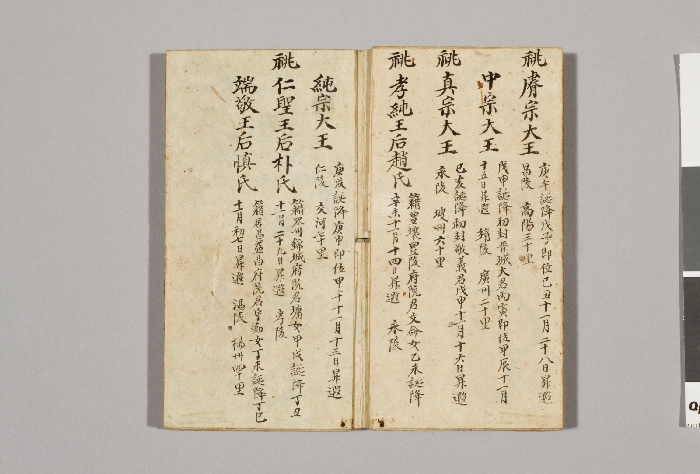 祧 睿宗大王
庚午誕降戊子即位己丑十一月二十八日昇遐
昌陵 高陽三十里
中宗大王
戊申誕降初封晉城大君丙寅即位甲辰十一月
十五日昇遐 靖陵 廣州二十里
祧 真宗大王
己亥誕降初封敬義君戊申十一月十六日昇遐
永陵 坡州六十里
祧 孝純王后趙氏
籍豊壤豊陵府院君文命女乙未誕降
辛未十一月十四日昇遐 永陵
純宗大王
庚戌誕降庚申即位甲午十一月十三日昇遐
仁陵 交河七十里
祧 仁聖王后朴氏
籍羅州錦城府院君墉女甲戌誕降丁丑
十一月二十九日昇遐 孝陵
端敬王后慎氏
籍居昌益昌府院君守勤女丁未誕降丁巳
十二月初七日昇遐 溫陵 楊州四十里